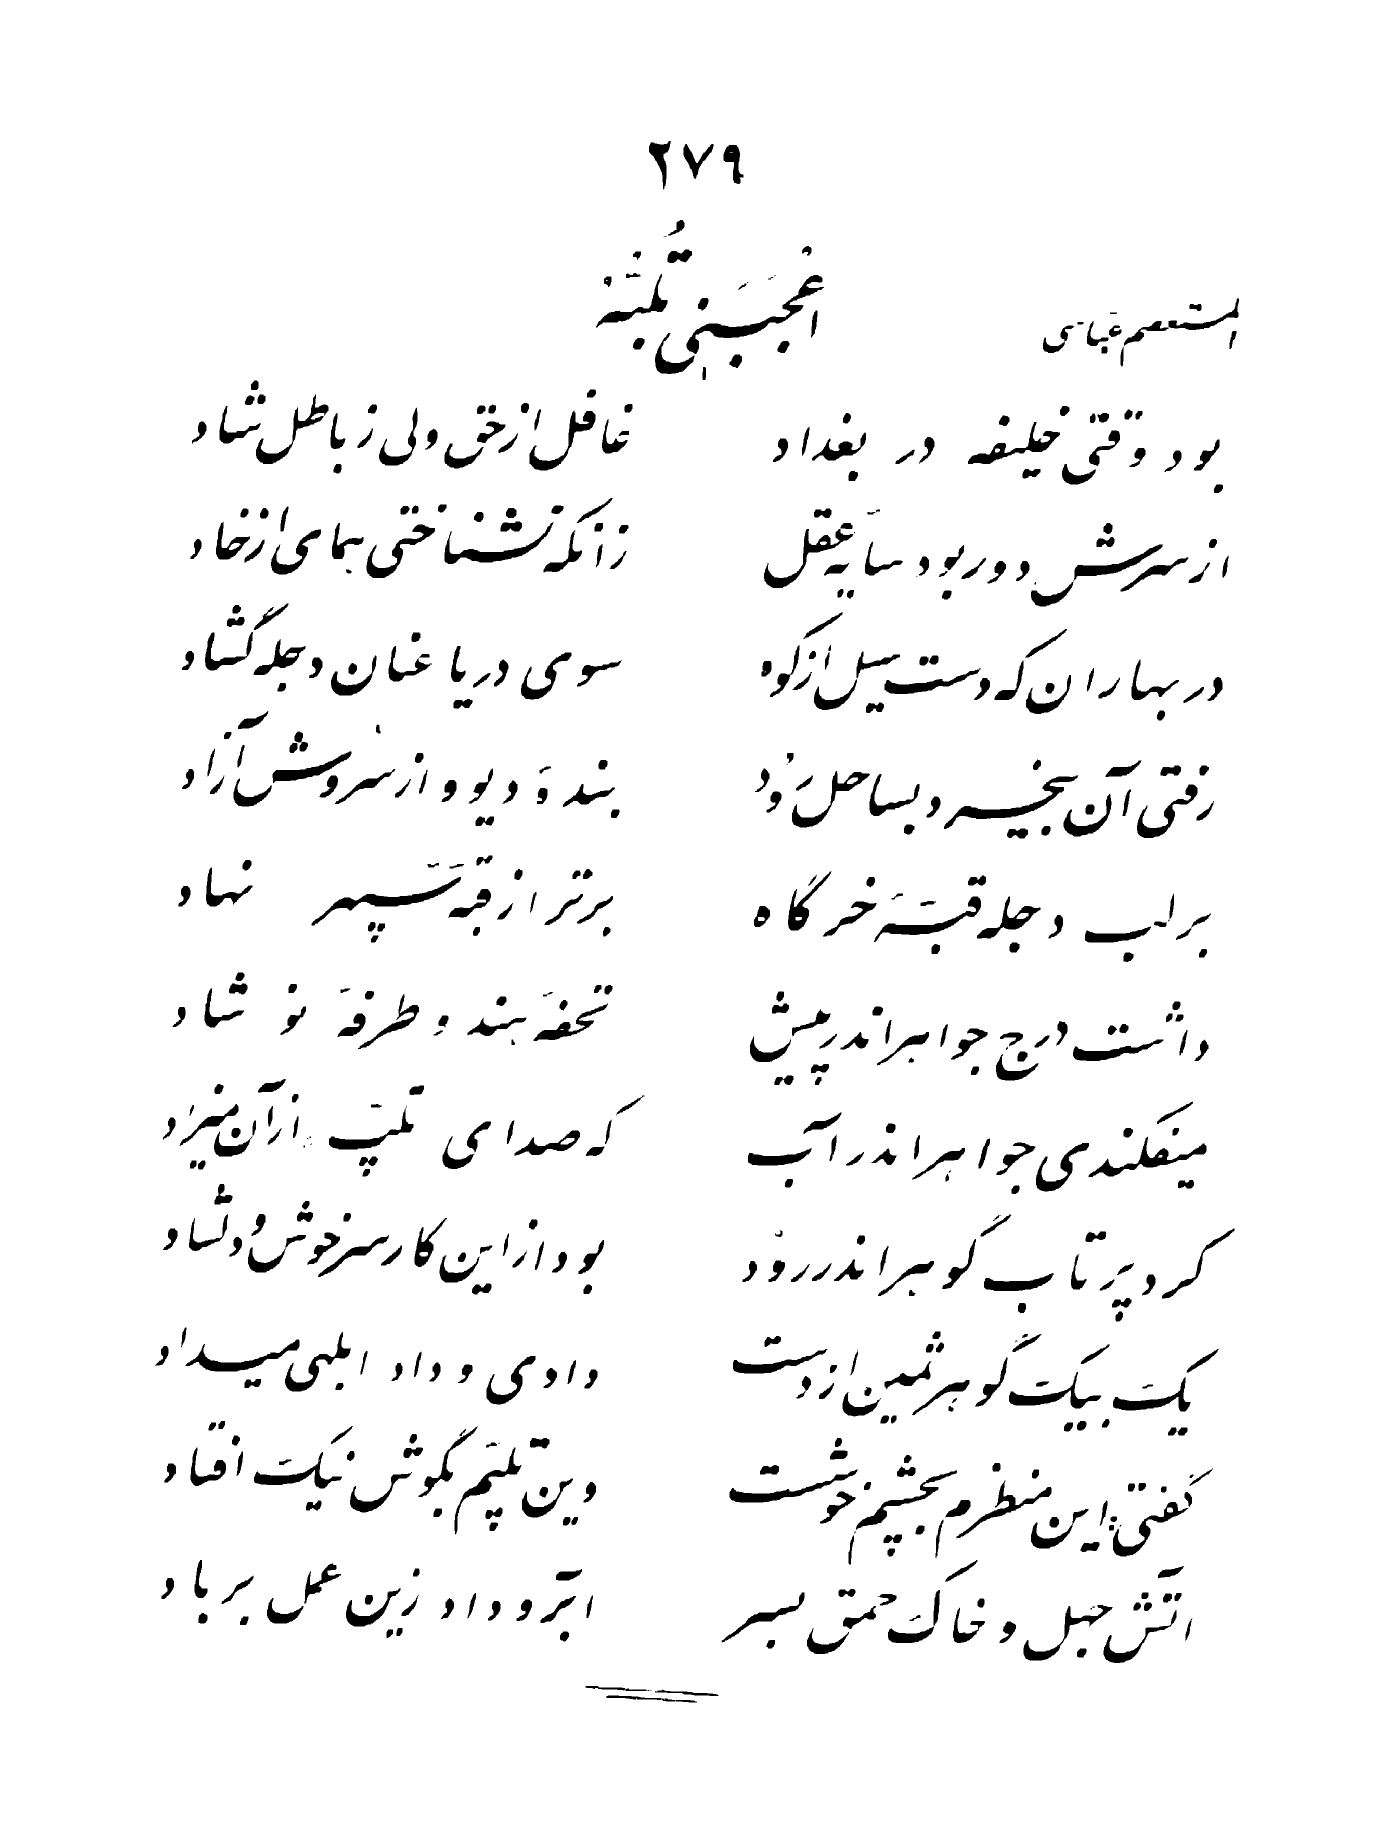 ۲۷۹
اعجبنی تلبنه
المستعصم عباسی
بود وقتی خلیفه در بغداد
غافل از حق ولی ز باطل شاد
از سرش دور بود سایه عقل
زانکه نشناختی همای از خاد
در بهاران که دست سیل از کوه
سوی دریا عنان دجله گشاد
رفتی آن بیخبر و بساحل رود
بندهٔ دیو و از سروش آزاد
بر لب دجله قبهٔ خرگاه
برتر از قبهٔ سپهر نهاد
داشت درج جواهر اندر پیش
تحفهٔ هند و طرفهٔ نوشاد
میفکندی جواهر اندر آب
که صدای تلپ از آن میزاد
کرد پرتاب گوهر اندر رود
بود از این کار سرخوش و دلشاد
یک بیک گوهر ثمین از دست
دادی و داد ابلهی میداد
گفتی این منظرم بچشم خوشست
وین تلپم بگوش نیک افتاد
آتش جهل و خاک حمق بسر
آبرو داد زین عمل بر باد